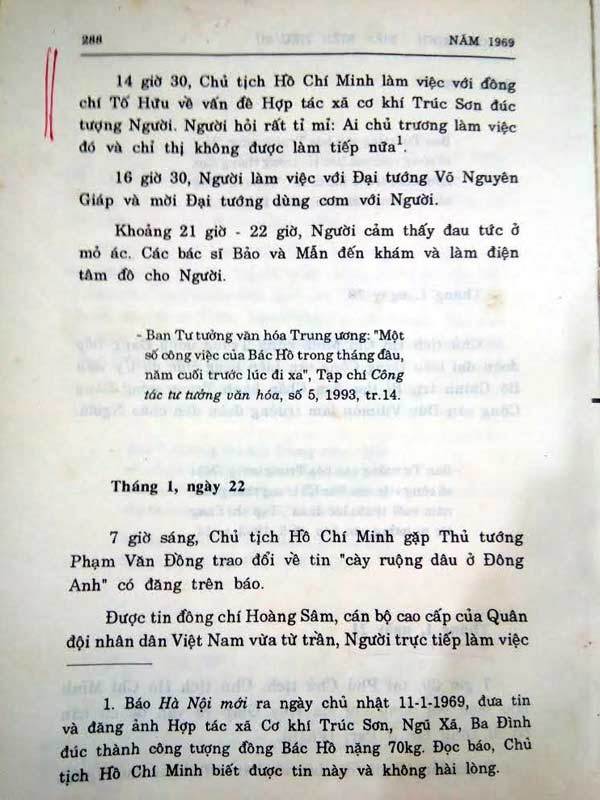 288
NĂM 1969
14 giờ 30, Chủ tịch Hồ Chí Minh làm việc với đồng
chí Tố Hữu về vấn đề Hợp tác xã cơ khí Trúc Sơn đúc
tượng Người. Người hỏi rất tỉ mỉ: Ai chủ trương làm việc
đó và chỉ thị không được làm tiếp nữa¹.
16 giờ 30, Người làm việc với Đại tướng Võ Nguyên
Giáp và mời Đại tướng dùng cơm với Người.
Khoảng 21 giờ - 22 giờ, Người cảm thấy đau tức ở
mỏ ác. Các bác sĩ Bảo và Mẫn đến khám và làm điện
tâm đồ cho Người.
- Ban Tư tưởng văn hóa Trung ương: "Một
số công việc của Bác Hồ trong tháng đầu,
năm cuối trước lúc đi xa", Tạp chí Công
tác tư tưởng văn hóa, số 5, 1993, tr.14.
Tháng 1, ngày 22
7 giờ sáng, Chủ tịch Hồ Chí Minh gặp Thủ tướng
Phạm Văn Đồng trao đổi về tin "cày ruộng dâu ở Đông
Anh" có đăng trên báo.
Được tin đồng chí Hoàng Sâm, cán bộ cao cấp của Quân
đội nhân dân Việt Nam vừa từ trần, Người trực tiếp làm việc
1. Báo Hà Nội mới ra ngày chủ nhật 11-1-1969, đưa tin
và đăng ảnh Hợp tác xã Cơ khí Trúc Sơn, Ngũ Xã, Ba Đình
đúc thành công tượng đồng Bác Hồ nặng 70kg. Đọc báo, Chủ
tịch Hồ Chí Minh biết được tin này và không hài lòng.